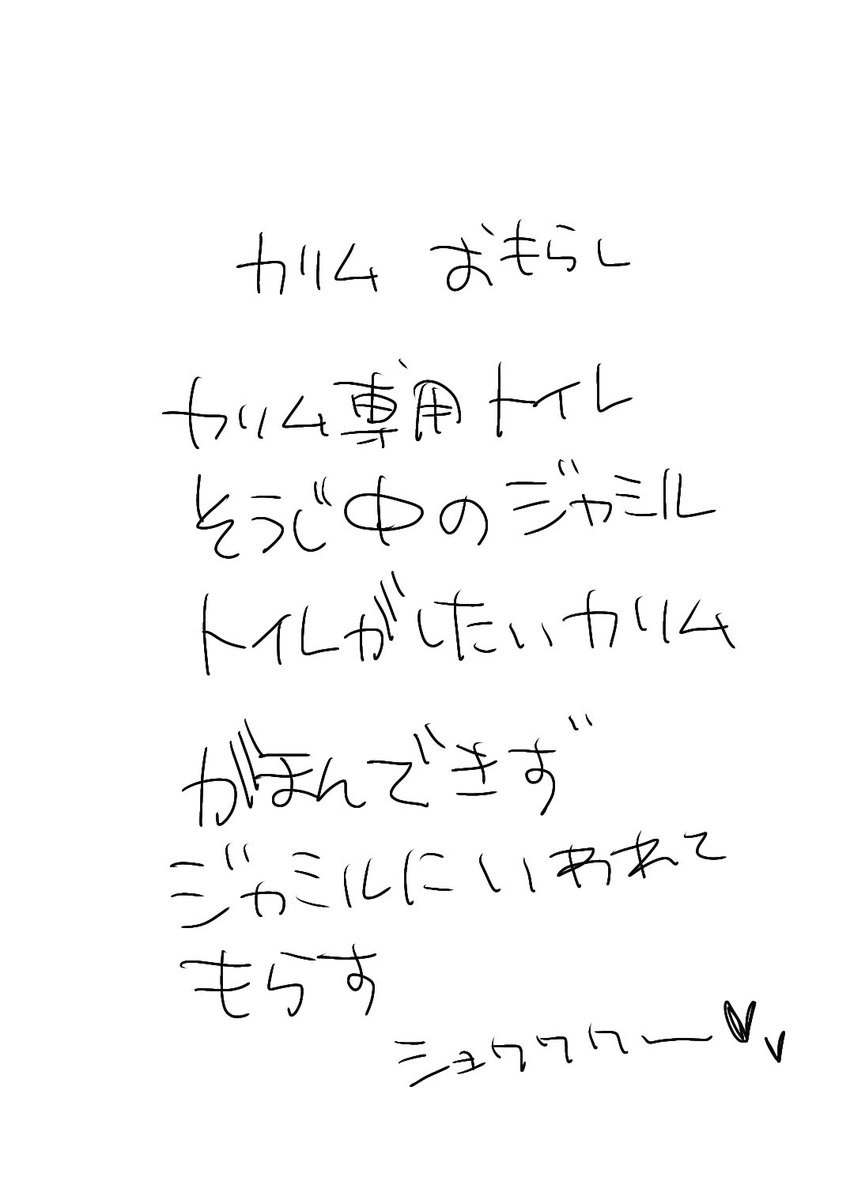 カリム おもらし
カリム専用トイレ
そうじ中のジャミル
トイレがしたいカリム
がまんできず
ジャミルにいわれて
もらす
シュワワワー♥♥